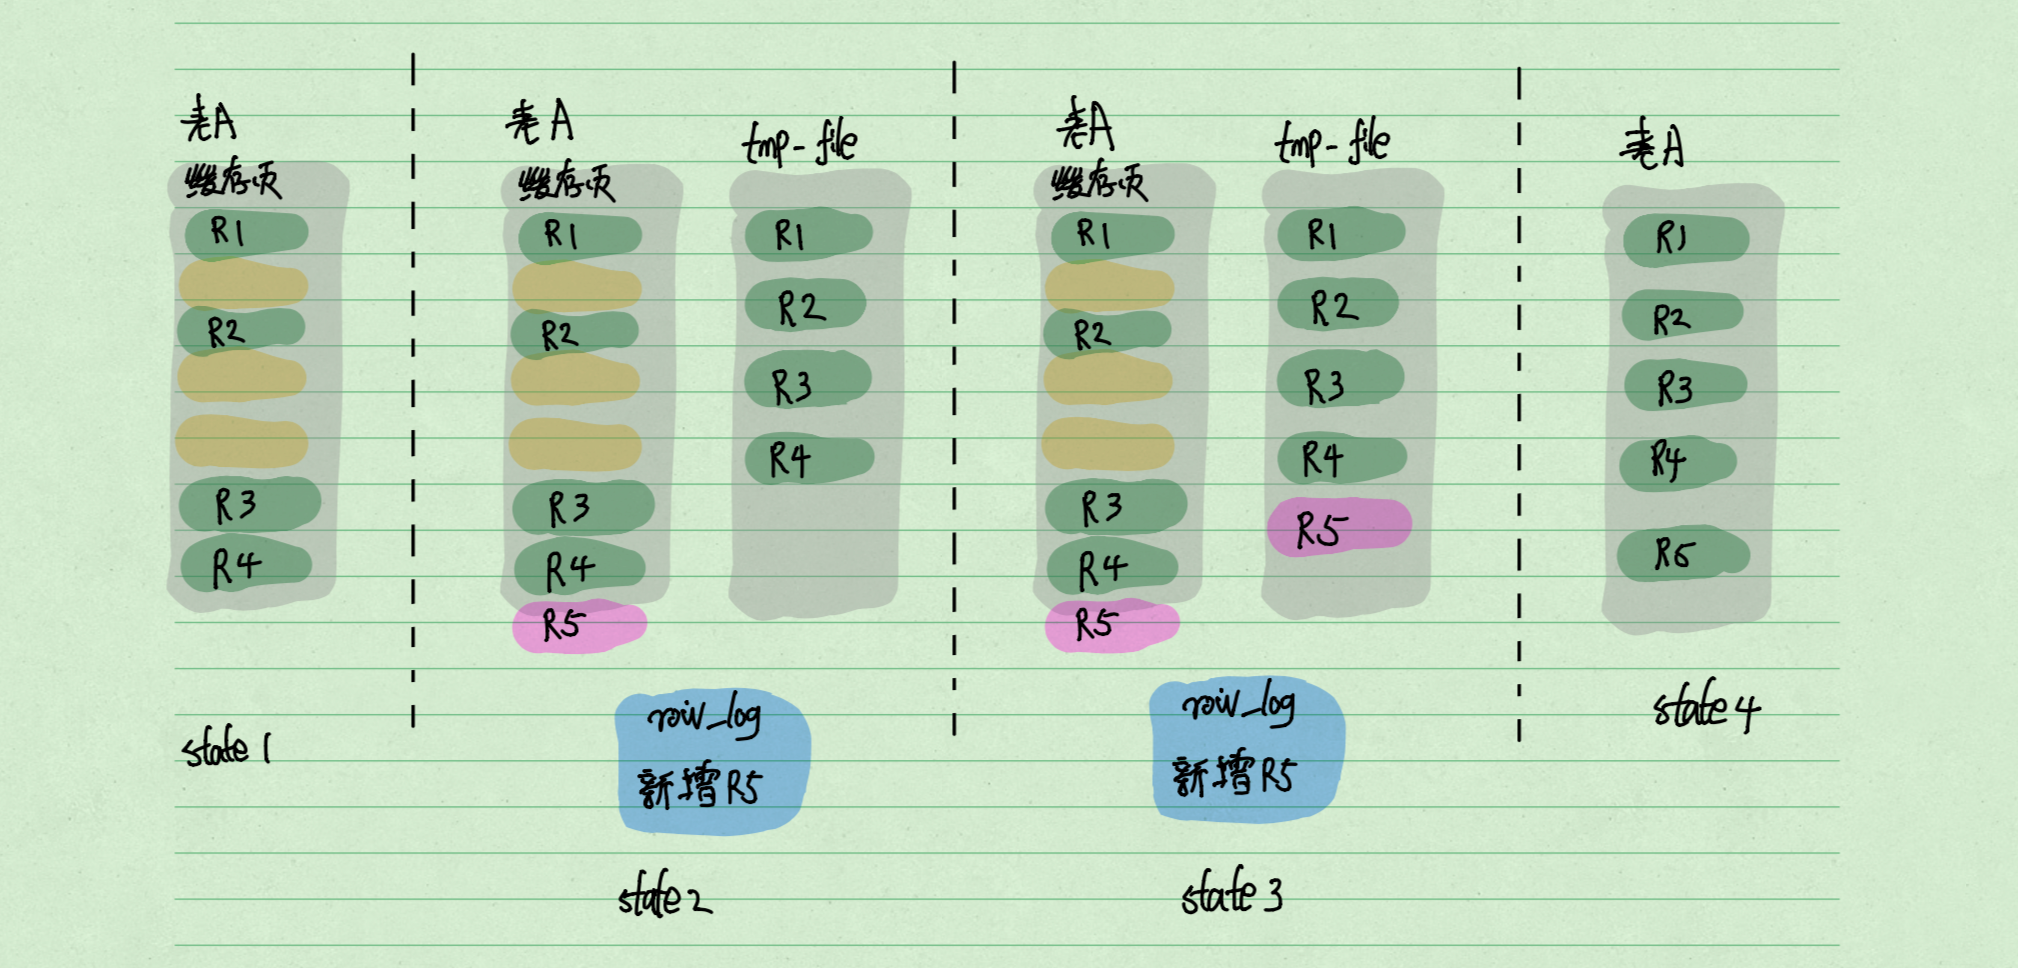 表A
缓存页
R1
R2
R3
R4
state 1
表A
缓存页
R1
R2
R3
R4
R5
tmp-file
R1
R2
R3
R4
row_log
新增R5
state2
表A
缓存页
R1
R2
R3
R4
R5
tmp-file
R1
R2
R3
R4
R5
row_log
新增R5
state 3
表A
R1
R2
R3
R4
R5
state 4